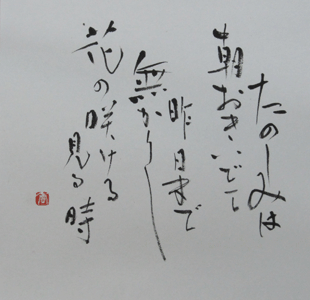 たのしみは
朝おきいでて
昨日まで
無かりし
花の咲ける
見る時